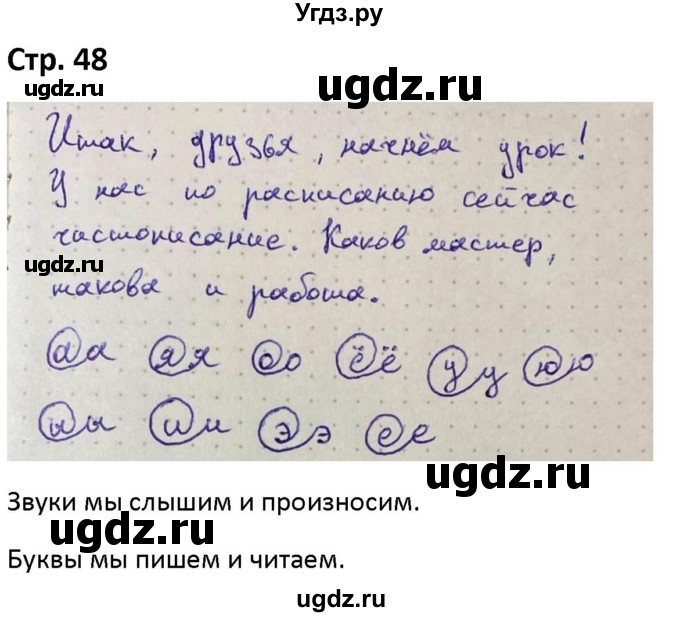 Угдз.ру
Стр. 48
ugdz.ru ugdz.ru
Итак, друзья, начнём урок!
ugdz.ru
У нас по расписанию сейчас
чистописание. Каков мастер,
ugdz.ru
такова и работа.
ugdz.ru
аа яя оо ёё уу юю
ыы ии ээ ее
ugdz.ru
Звуки мы слышим и произносим.
ugdz.ru
Буквы мы пишем и читаем.
ugdz.ru